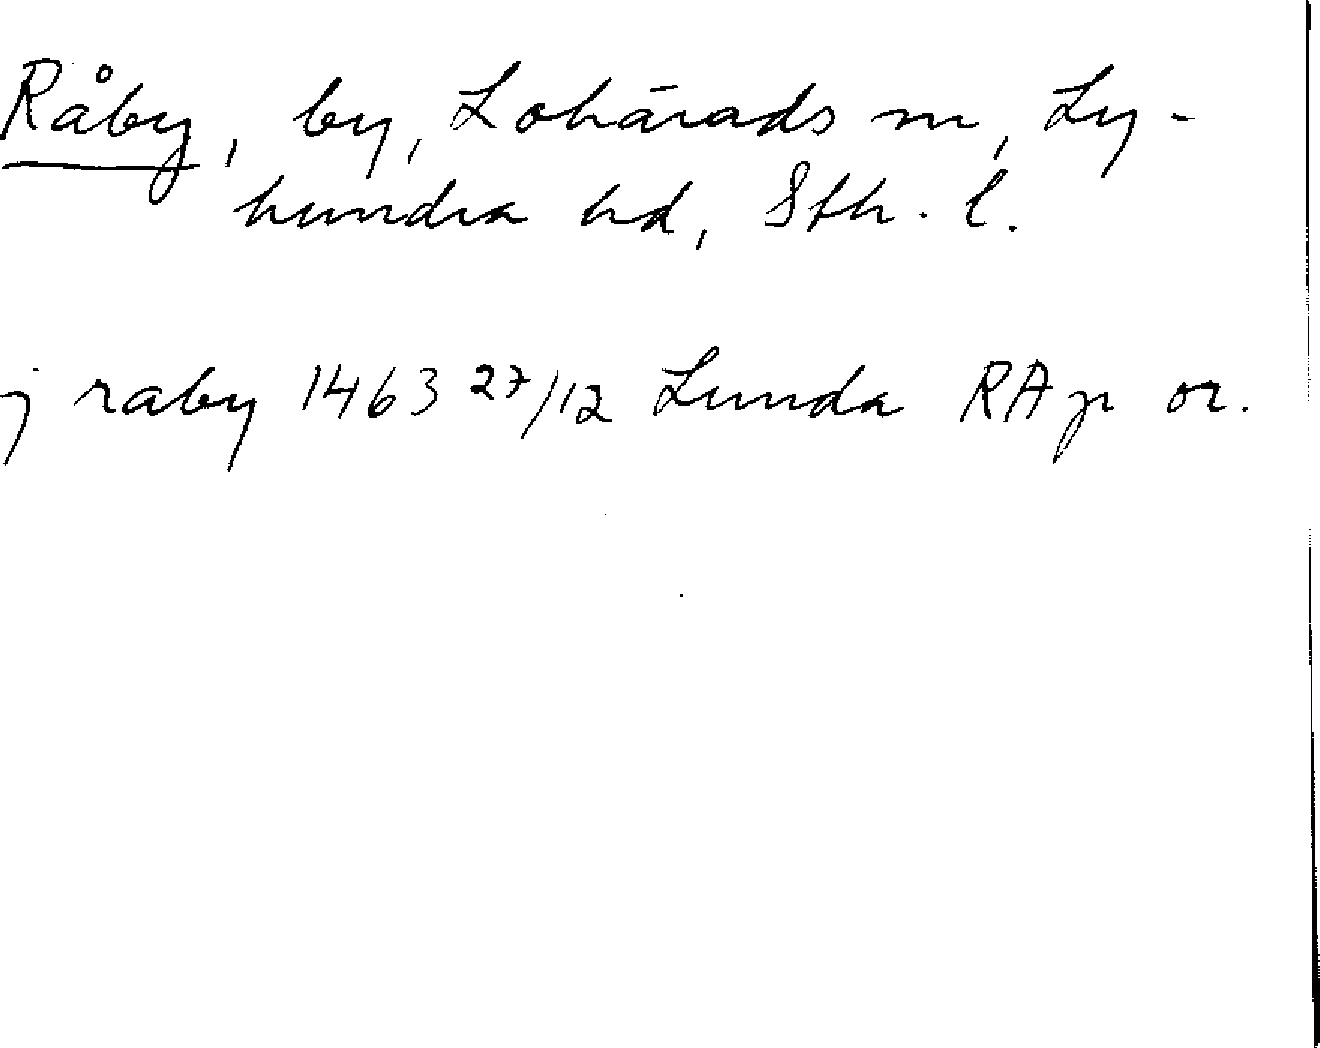 Råby, by, Lohärads sn, Ly-
hundra hd, Sth. l.
j raby 1463 27/12 Lunda RAp or.